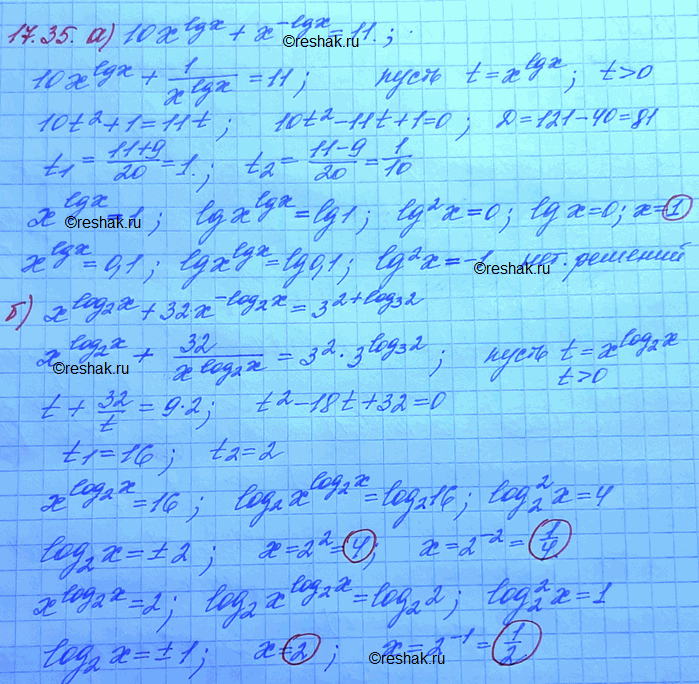 17.35. а) 10x^{lgx} + x^{-lgx} = 11. ;
©reshak.ru
10x^{lgx} + \frac{1}{x^{lgx}} = 11 ; пусть t = x^{lgx} ; t>0
10t² + 1 = 11t ; 10t² - 11t + 1 = 0 ; D = 121 - 40 = 81
t₁ = \frac{11+9}{20} = 1. ; t₂ = \frac{11-9}{20} = \frac{1}{10}
x^{lgx} = 1 ; lg x^{lgx} = lg1 ; lg²x = 0 ; lg x = 0 ; x = 1
©reshak.ru ©reshak.ru
x^{lgx} = 0,1 ; lg x^{lgx} = lg0,1 ; lg²x = -1 нет. решений
©reshak.ru
б) x^{log₂x} + 32·x^{-log₂x} = 3^{2+log₃2}
x^{log₂x} + \frac{32}{x^{log₂x}} = 3²·3^{log₃2} ; пусть t = x^{log₂x}
©reshak.ru t>0
t + \frac{32}{t} = 9·2 ; t² - 18t + 32 = 0
t₁ = 16 ; t₂ = 2
x^{log₂x} = 16 ; log₂x^{log₂x} = log₂16 ; log₂²x = 4
log₂x = ±2 ; x = 2² = 4 ; x = 2^{-2} = \frac{1}{4}
x^{log₂x} = 2 ; log₂x^{log₂x} = log₂2 ; log₂²x = 1
log₂x = ±1 ; x = 2 ; x = 2^{-1} = \frac{1}{2}
©reshak.ru